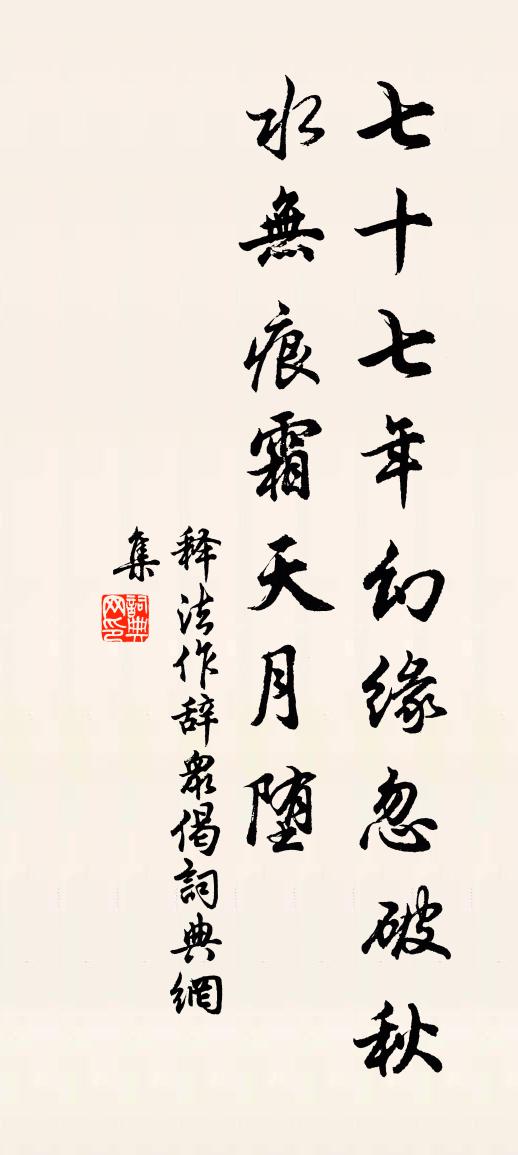 七十七年幻缘忽破秋
水無痕霜天月堕
释法作辞眾偈詞典網
集
詞典網印